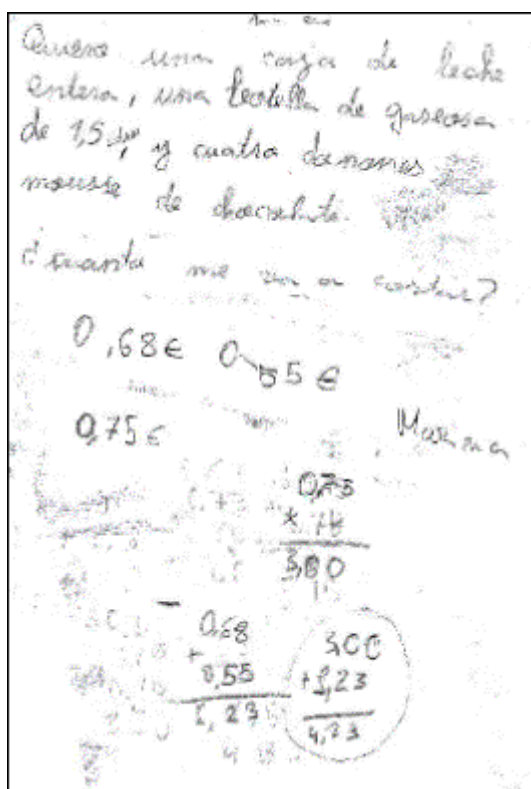 Quiero una caja de leche
entera, una botella de gaseosa
de 1,5 y cuatro danones
mousse de chocolate.
¿Cuanto me va a costar?
0,68€ 0,55€
0,75€
0,75
3,00
0,68 3,00
+ 0,55 +1,23
1,23 4,23